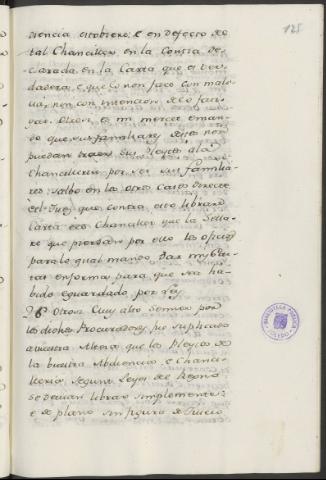 125
diencia estobiere, e en defecto de
tal Chanciller en la Contia de-
clarada en la Carta que es ver-
dadera, e que lo non faco con mali-
cia, non con intencion de lo far-
var. Otrosi, es mi merced e man-
do que sus familiares destos non
puedan traer sus Pleytos a la
Chancilleria por ser sus familia-
res, salbo en los otros Casos de corte
e el Juez que contra esto librare
Carta e el Chanciller que la Sella-
re que pierdan por ello los oficios
para lo qual mando dar mis Car-
tas en forma para que sea ha-
bido e guardado por Ley.
Otrosi Muy alto Sennor por
los dichos Procuradores fue suplicado
a vuestra Alteza que los Pleytos de
la vuestra Abdiencia e Chanci-
lleria, segunt Leyes del Regno
se devian librar simplemente
e de plano sin figura de Juicio